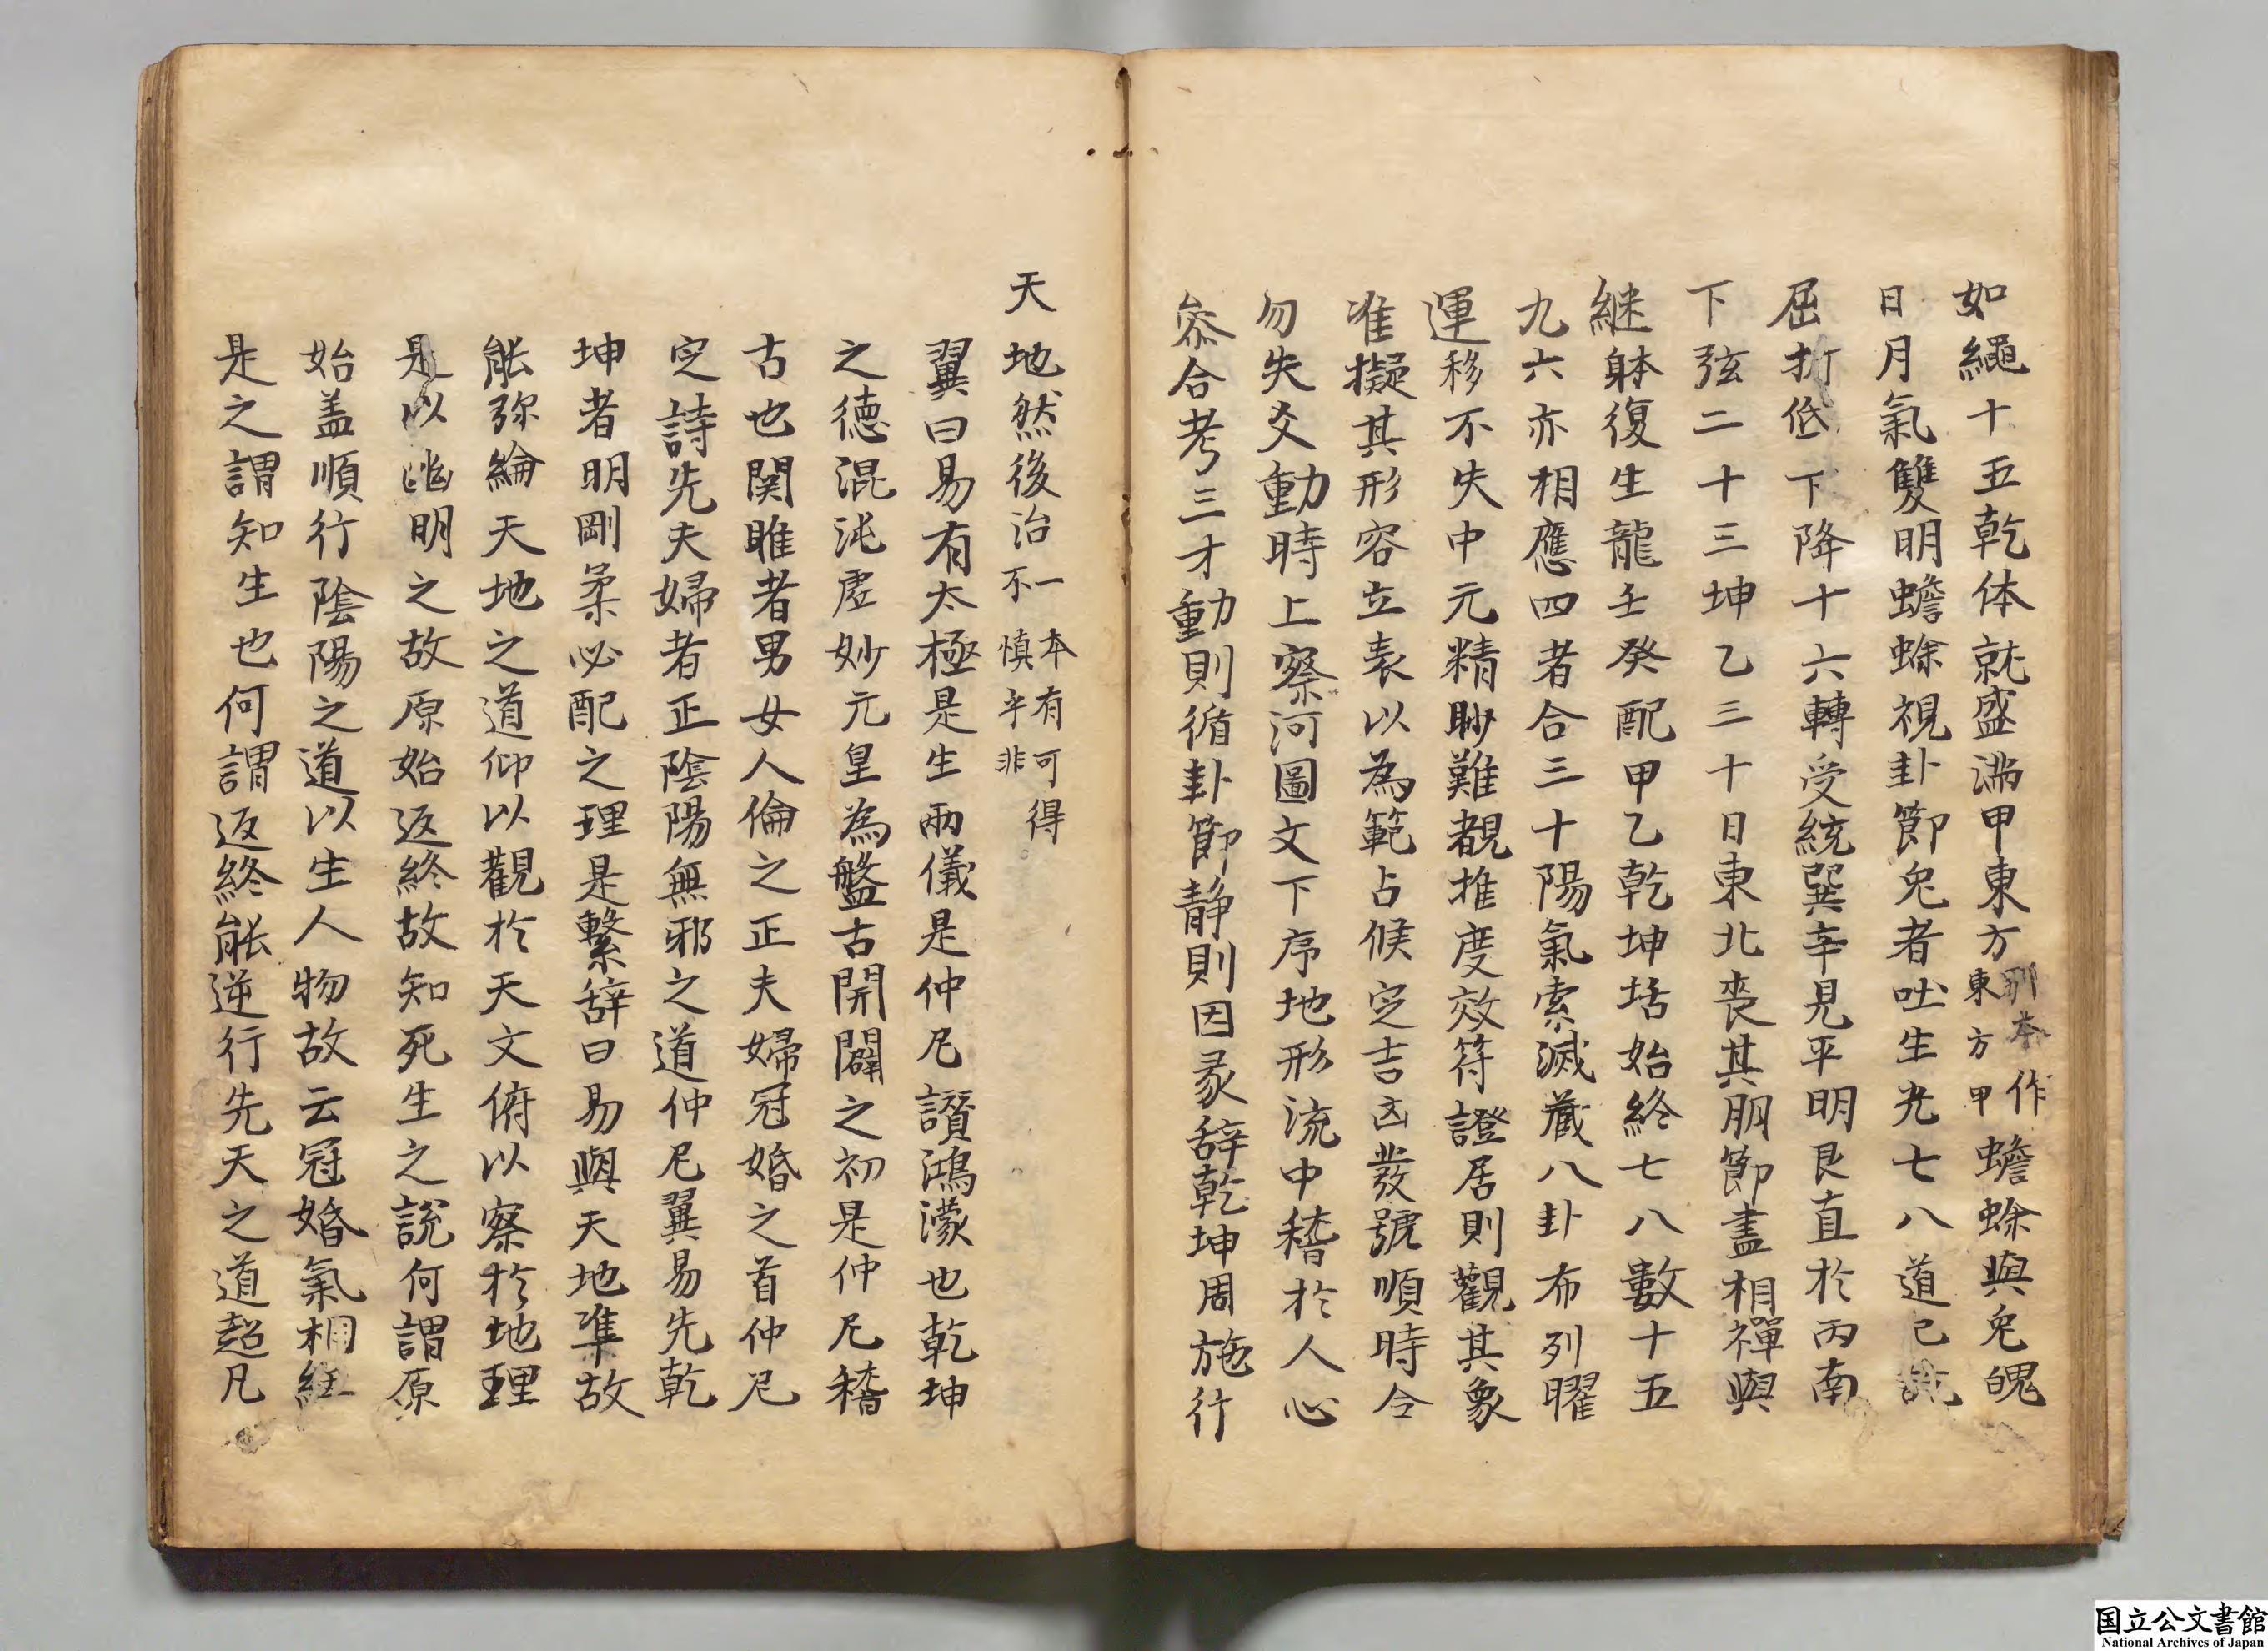 如繩十五乾体就盛滿甲東方別本作東方甲蟾蜍與兔魄
日月氣雙明蟾蜍視卦節兔者吐生光七八道已訖
屈折低下降十六轉受統巽辛見平明艮直於丙南
下弦二十三坤乙三十日東北喪其朋節盡相禪與
継躰復生龍壬癸配甲乙乾坤括始終七八數十五
九六亦相應四者合三十陽氣索滅藏八卦布列曜
運移不失中元精眇難覩推度效符證居則觀其象
准擬其形容立表以為範占候定吉凶發號順時令
勿失爻動時上察河圖文下序地形流中稽於人心
叅合考三才動則循卦節静則因彖辞乾坤周施行
天地然後治一本有可不慎乎非得
翼曰易有太極是生兩儀是仲尼讃鴻濛也乾坤
之德混沌虛妙元皇為盤古開闢之初是仲尼稽
古也関雎者男女人倫之正夫婦冠婚之首仲尼
定詩先夫婦者正陰陽無邪之道仲尼翼易先乾
坤者明剛柔必配之理是繫辞曰易與天地準故
能弥綸天地之道仰以觀於天文俯以察於地理
是以幽明之故原始返終故知死生之說何謂原
始盖順行陰陽之道以生人物故云冠婚氣相紐
是之謂知生也何謂返終能逆行先天之道超凡
国立公文書館
National Archives of Japan